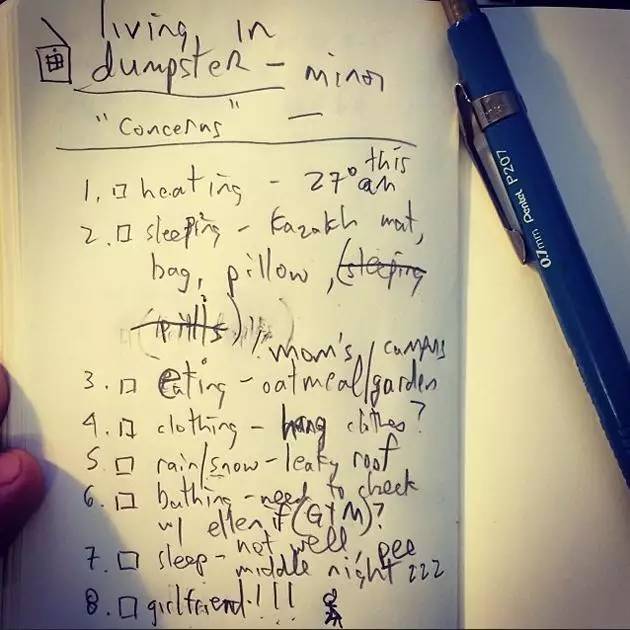 living, in
dumpster - minor
"concerns" -
1. heating - 27° this am
2. sleeping - Kazakh mat,
bag, pillow, (sleeping
pills)
mom's/campus
3. eating - oatmeal/garden
4. clothing - hang clothes?
5. rain/snow - leaky roof
6. bathing - need to check
w/ ellen if (GYM)?
7. sleep - not well, pee
middle night zzz
8. girlfriend!!!
0.7mm Pentel P207